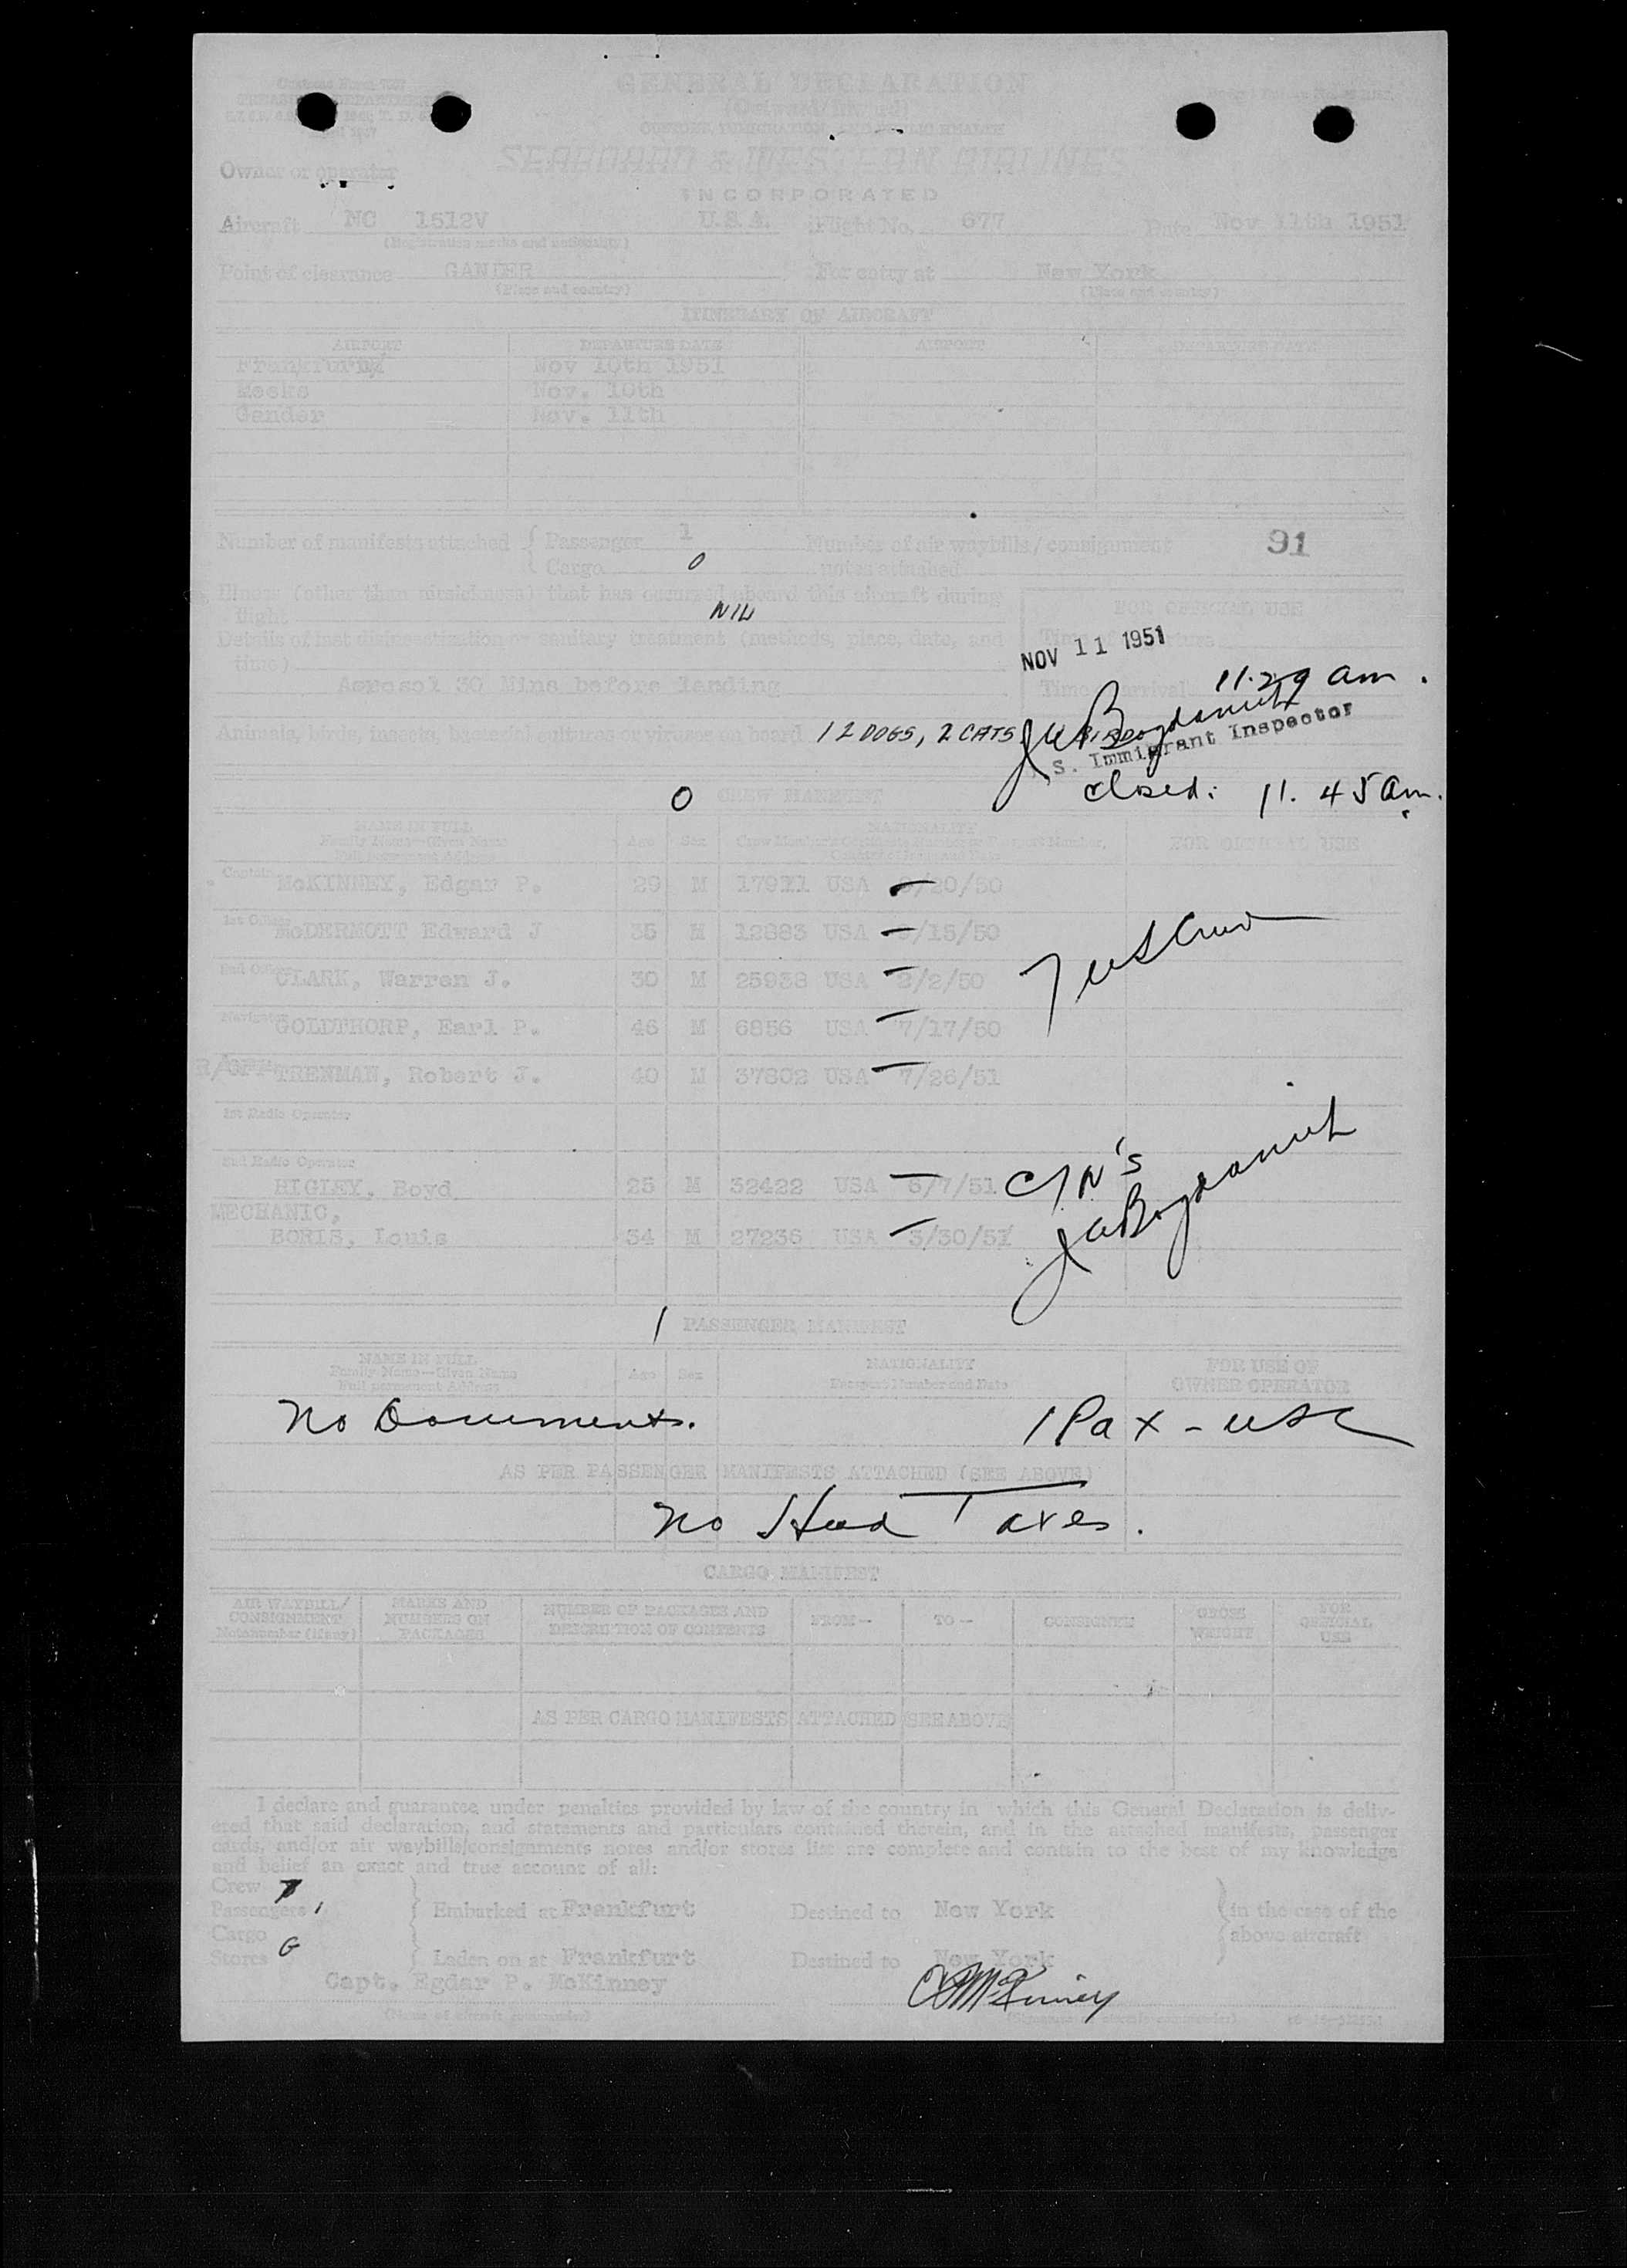 Customs Form 7507
TREASURY DEPARTMENT
GENERAL DECLARATION
(Outward/Inward)
CUSTOMS, IMMIGRATION, AND PUBLIC HEALTH
SEABOARD & WESTERN AIRLINES
INCORPORATED
Owner or operator
Aircraft NC 1512V U.S.A. Flight No. 677 Date Nov 11th 1951
(Registration marks and nationality)
Point of clearance GANDER For entry at New York
(Place and country) (Place and country)
ITINERARY OF AIRCRAFT
AIRPORT DEPARTURE DATE AIRPORT DEPARTURE DATE
Nov 10th 1951
Meeks Nov. 10th
Gander Nov. 11th
Number of manifests attached { Passenger 1 Number of air waybills/consignment 91
Cargo 0 notes attached
Illness (other than airsickness) that has occurred aboard this aircraft during
flight NIL FOR OFFICIAL USE
Details of last disinsectization or sanitary treatment (methods, place, date, and
time) NOV 11 1951
Aerosol 30 Mins before landing Time arrival 11.29 am.
Animals, birds, insects, bacterial cultures or viruses on board 12 DOGS, 2 CATS
S. Immigrant Inspector
closed: 11.45 am.
0 CREW MANIFEST
NAME IN FULL NATIONALITY
Family Name—Given Name Age Sex FOR OFFICIAL USE
Full permanent Address
Captain McKINNEY, Edgar P. 29 M USA /20/50
1st Officer McDERMOTT Edward J 35 M 12883 USA /15/50
2nd Officer CLARK, Warren J. 30 M 25938 USA 2/2/50
Navigator GOLDTHORP, Earl P. 46 M 6856 USA 7/17/50
R/OFF TRENMAN, Robert J. 40 M 37802 USA 7/26/51
7 USCrew
1st Radio Operator
2nd Radio Operator
HIGLEY, Boyd 25 M 32422 USA 6/7/51 C/N's
MECHANIC,
BORIS, Louis 34 M 27236 USA 3/30/51
1 PASSENGER MANIFEST
NAME IN FULL NATIONALITY FOR USE OF
Family Name—Given Name Age Sex Passport Number and Date OWNER OPERATOR
Full permanent Address
No Documents. 1 Pax - USC
AS PER PASSENGER MANIFESTS ATTACHED (SEE ABOVE)
No Head Taxes.
CARGO MANIFEST
AIR WAYBILL/ MARKS AND NUMBER OF PACKAGES AND FROM— TO— CONSIGNEE GROSS FOR
CONSIGNMENT NUMBERS ON DESCRIPTION OF CONTENTS WEIGHT OFFICIAL
Note number (if any) PACKAGES USE
AS PER CARGO MANIFESTS ATTACHED SEE ABOVE
I declare and guarantee under penalties provided by law of the country in which this General Declaration is deliv-
ered that said declaration, and statements and particulars contained therein, and in the attached manifests, passenger
cards, and/or air waybills/consignments notes and/or stores list are complete and contain to the best of my knowledge
and belief an exact and true account of all:
Crew 7
Passengers 1 } Embarked at Frankfurt Destined to New York } in the case of the
Cargo above aircraft
Stores G } Laden on at Frankfurt Destined to New York
Capt. Egdar P. McKinney McKinney
(Name of aircraft commander) (Signature of aircraft commander)